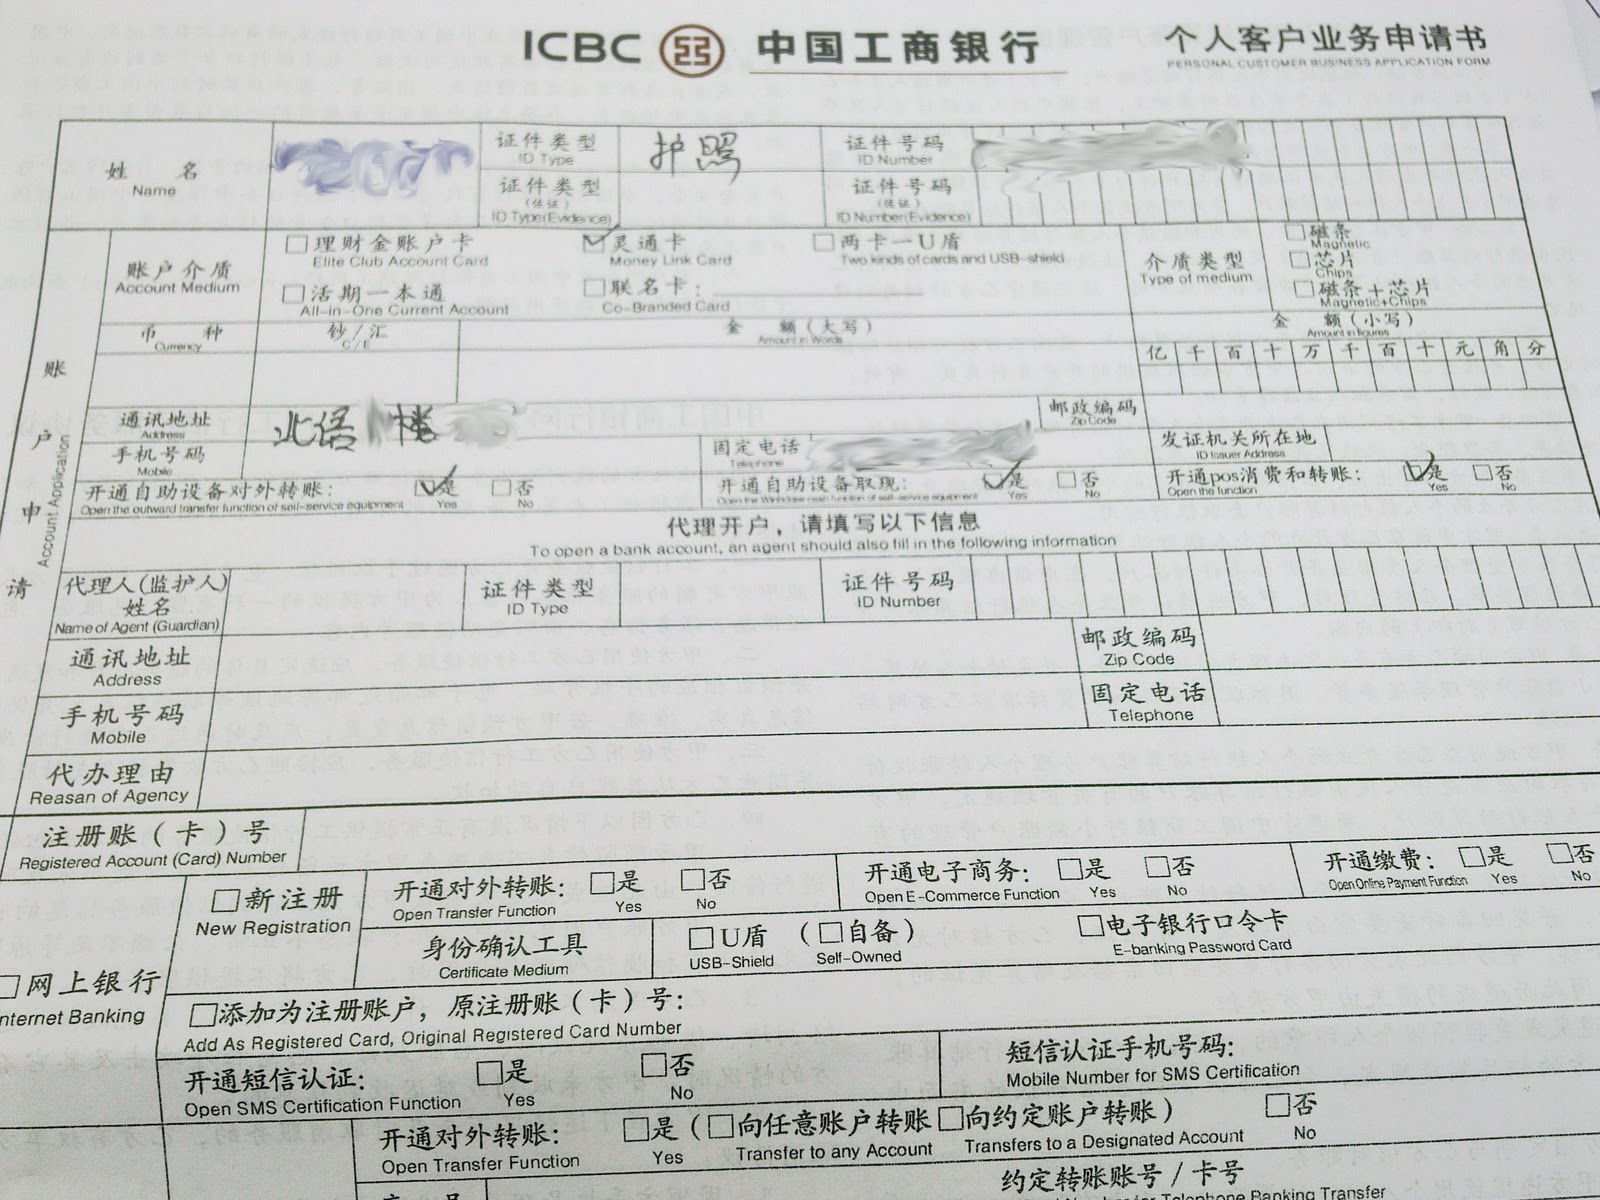 ICBC 中国工商银行 个人客户业务申请书
PERSONAL CUSTOMER BUSINESS APPLICATION FORM
姓 名 证件类型 护照 证件号码
Name ID Type ID Number
证件类型 证件号码
(佐证) (佐证)
ID Type(Evidence) ID Number(Evidence)
账户申请
Account Application
账户介质 理财金账户卡 灵通卡 两卡一U盾 介质类型 磁条
Account Medium Elite Club Account Card Money Link Card Two kinds of cards and USB-shield Type of medium Magnetic
芯片
Chips
活期一本通 联名卡: 磁条+芯片
All-in-One Current Account Co-Branded Card Magnetic+Chips
币 种 钞/汇 金 额(大写) 金 额(小写)
Currency C/E Amount in Words Amount in figures
亿 千 百 十 万 千 百 十 元 角 分
通讯地址 北语 楼 邮政编码
Address Zip Code
手机号码 固定电话 发证机关所在地
Mobile Telephone ID Issuer Address
开通自助设备对外转账: 是 否 开通自助设备取现: 是 否 开通pos消费和转账: 是 否
Open the outward transfer function of self-service equipment Yes No Open the Withdraw cash function of self-service equipment Yes No Open the function Yes No
代理开户,请填写以下信息
To open a bank account, an agent should also fill in the following information
代理人(监护人) 证件类型 证件号码
姓名 ID Type ID Number
Name of Agent (Guardian)
通讯地址 邮政编码
Address Zip Code
手机号码 固定电话
Mobile Telephone
代办理由
Reasan of Agency
注册账(卡)号
Registered Account (Card) Number
新注册 开通对外转账: 是 否 开通电子商务: 是 否 开通缴费: 是 否
New Registration Open Transfer Function Yes No Open E-Commerce Function Yes No Open Online Payment Function Yes No
身份确认工具 U盾 (自备) 电子银行口令卡
Certificate Medium USB-Shield Self-Owned E-banking Password Card
网上银行
nternet Banking
添加为注册账户,原注册账(卡)号:
Add As Registered Card, Original Registered Card Number
开通短信认证: 是 否 短信认证手机号码:
Open SMS Certification Function Yes No Mobile Number for SMS Certification
开通对外转账: 是(向任意账户转账 向约定账户转账) 否
Open Transfer Function Yes Transfer to any Account Transfers to a Designated Account No
约定转账账号/卡号
Telephone Banking Transfer